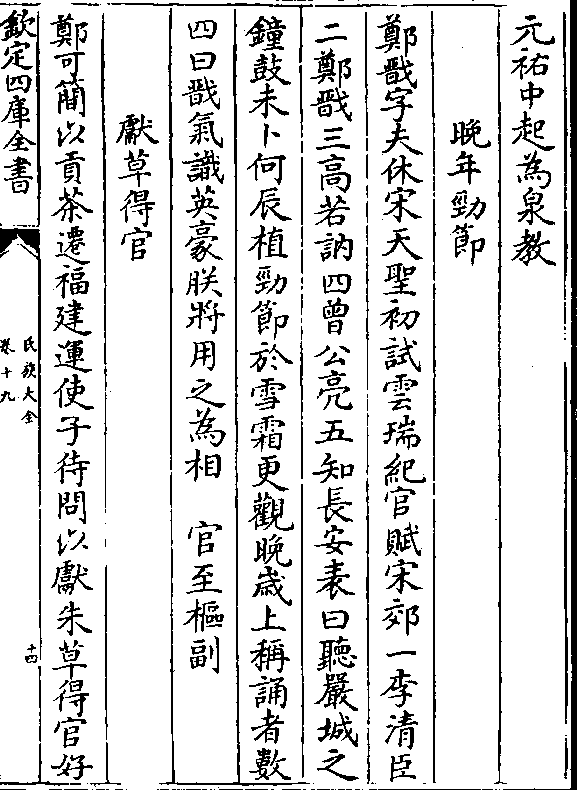 元祐中起為泉教
晚年勁節
鄭戩字夫休宋天聖初試雲瑞紀官賦宋郊一李清臣
二鄭戩三高若訥四曾公亮五知長安表曰聽嚴城之
鐘鼓未卜何辰植勁節於雪霜更觀晚歲上稱誦者數
四曰戩氣識英豪朕將用之為相　官至樞副
獻草得官
鄭可蕳以貢茶遷福建運使子待問以獻朱草得官好
欽定四庫全書
氏族大全
卷十九
十四